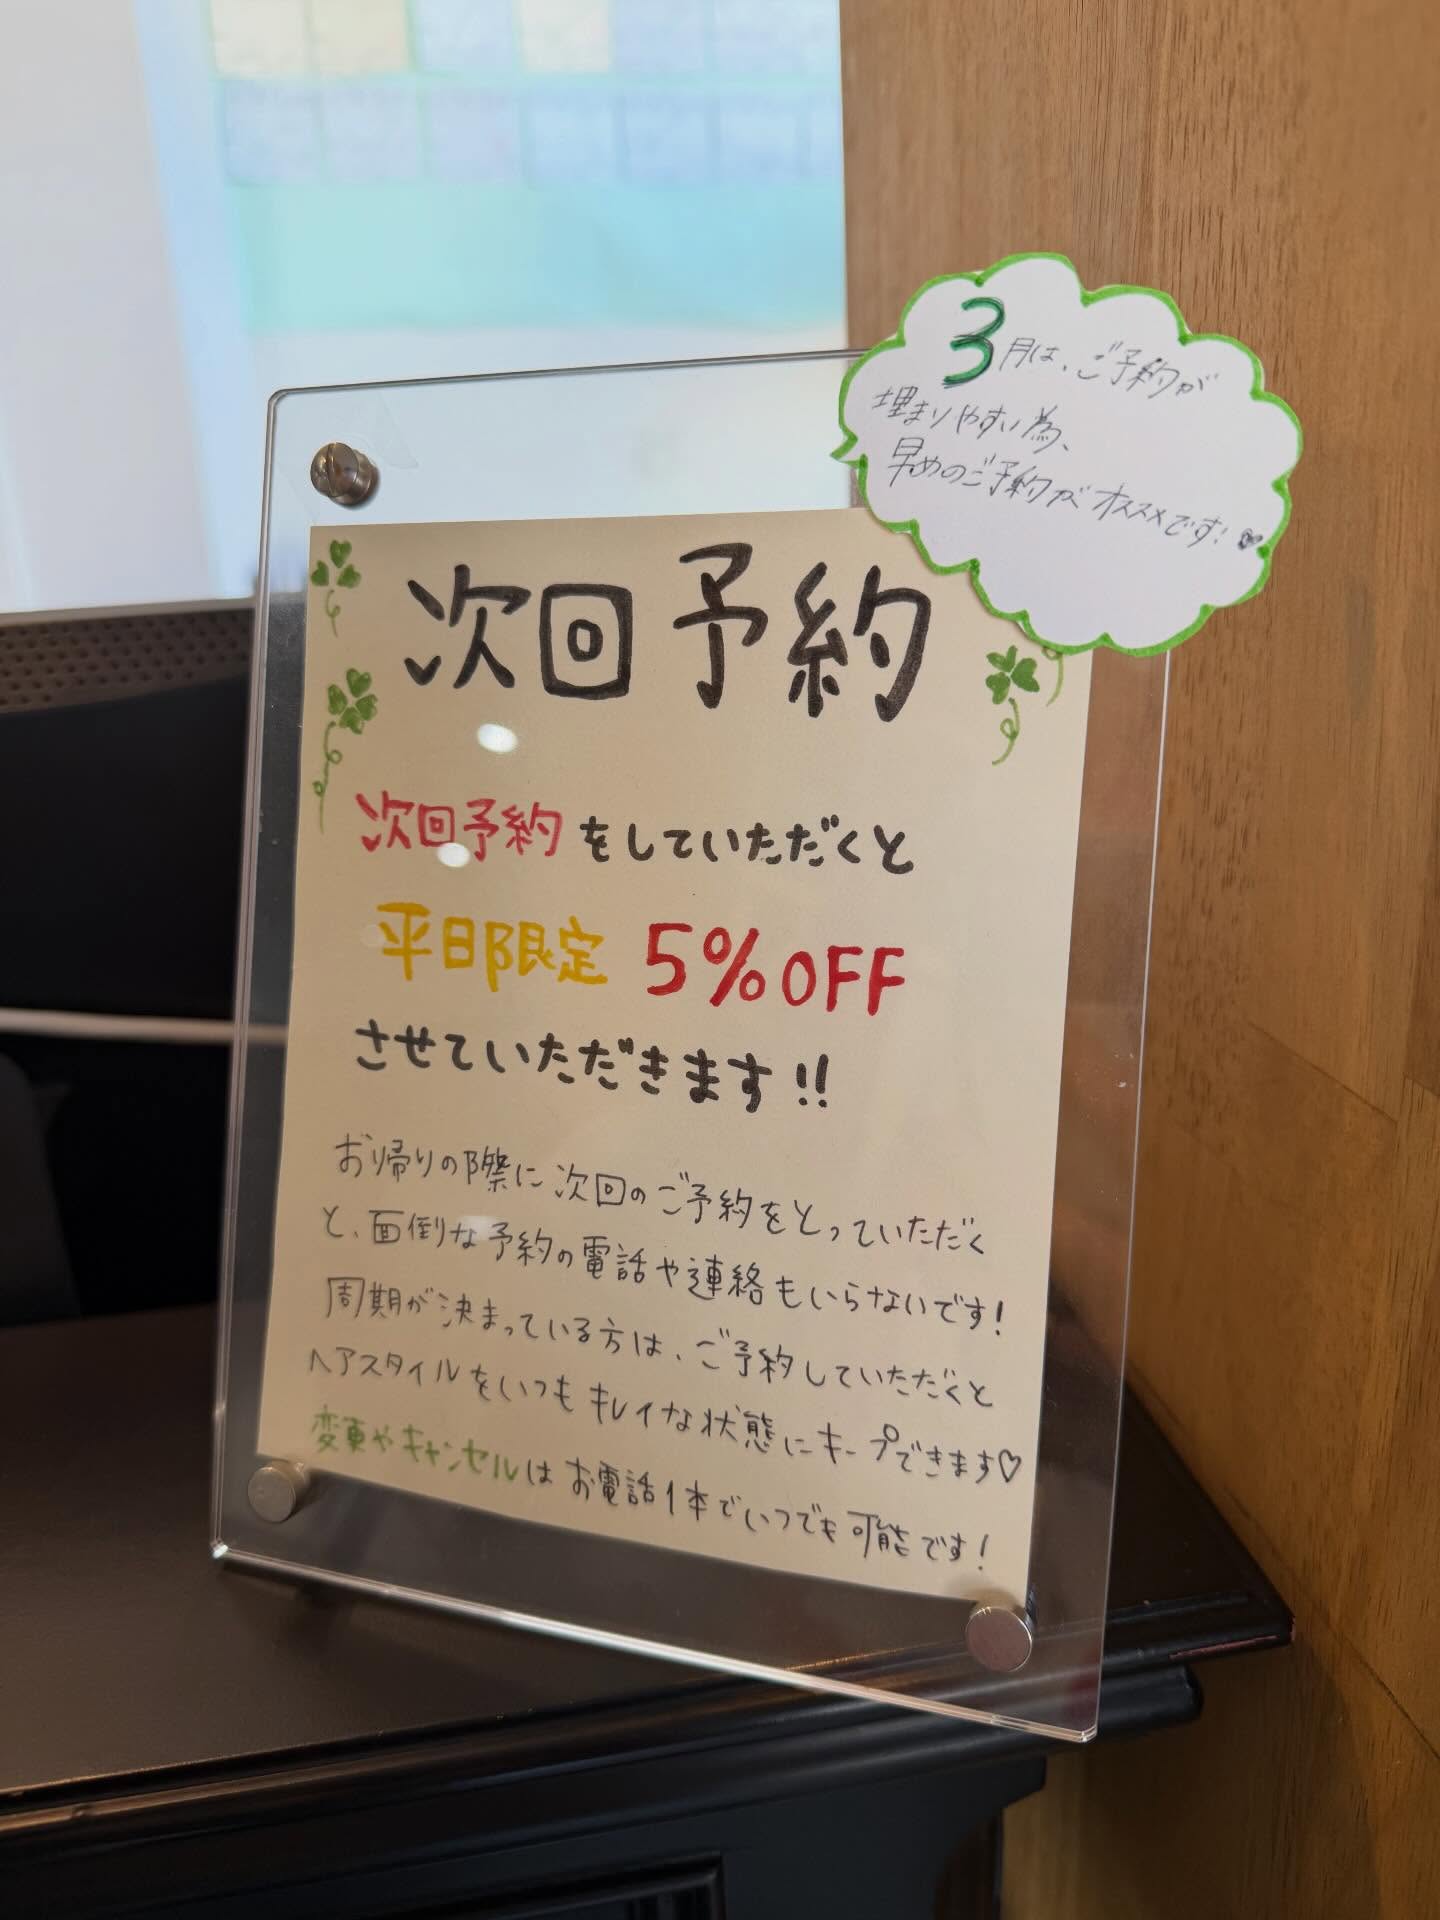 3月は、ご予約が
埋まりやすい為、
早めのご予約がオススメです!
次回予約
次回予約をしていただくと
平日限定 5%OFF
させていただきます!!
お帰りの際に次回のご予約をとっていただく
と、面倒な予約の電話や連絡もいらないです!
周期が決まっている方は、ご予約していただくと
ヘアスタイルをいつもキレイな状態にキープできます♡
変更やキャンセルはお電話1本でいつでも可能です!